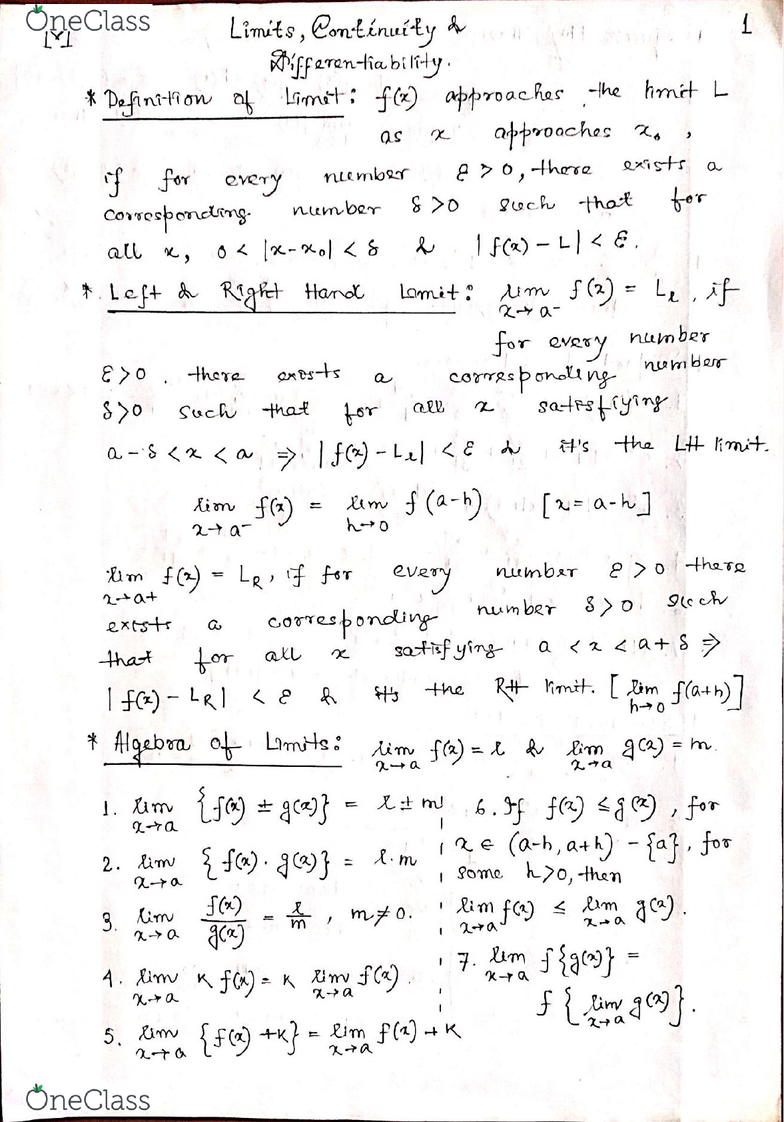 OneClass
1
[Y]
Limits, Continuity &
Differentiability.
* Definition of Limit: f(x) approaches the limit L
as x approaches x₀,
if for every number ε > 0, there exists a
corresponding number δ > 0 such that for
all x, 0 < |x-x₀| < δ & |f(x) - L| < ε.
* Left & Right Hand Limit: lim x→a⁻ f(x) = Lₗ, if
for every number
ε > 0. there exists a corresponding number
δ > 0 such that for all x satisfiying
a - δ < x < a ⇒ |f(x) - Lₗ| < ε & it's the LH limit.
lim x→a⁻ f(x) = lim h→0 f(a-h) [x = a-h]
lim x→a+ f(x) = L_R, if for every number ε > 0 there
exists a corresponding number δ > 0 such
that for all x satisfying a < x < a + δ ⇒
|f(x) - L_R| < ε & it's the RH limit. [lim h→0 f(a+h)]
* Algebra of Limits: lim x→a f(x) = l & lim x→a g(x) = m.
1. lim x→a {f(x) ± g(x)} = l ± m
2. lim x→a {f(x) · g(x)} = l · m
3. lim x→a f(x)/g(x) = l/m, m ≠ 0.
4. lim x→a K f(x) = K lim x→a f(x).
5. lim x→a {f(x) + K} = lim x→a f(x) + K
6. If f(x) ≤ g(x), for
x ∈ (a-h, a+h) - {a}, for
some h > 0, then
lim x→a f(x) ≤ lim x→a g(x).
7. lim x→a f{g(x)} =
f{lim x→a g(x)}.
OneClass